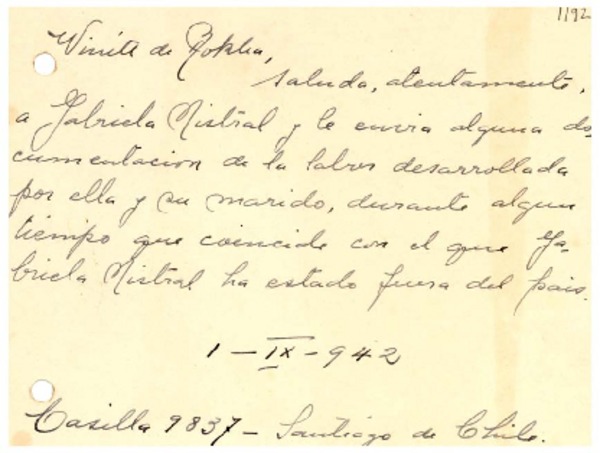 1192
Winétt de Rokha,
saluda, atentamente,
a Gabriela Mistral y le envia alguna do
cumentacion de la labor desarrollada
por ella y su marido, durante algun
tiempo que coincide con el que Ga-
briela Mistral ha estado fuera del pais.
1 - IX - 942
Casilla 9837 - Santiago de Chile.